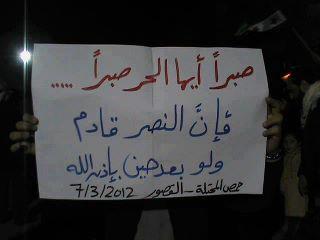 صبراً أيها الحر صبراً .....
فإنَّ النصر قادم
ولو بعد حين بإذن الله
حمص المحتلة - القصور
7/3/2012